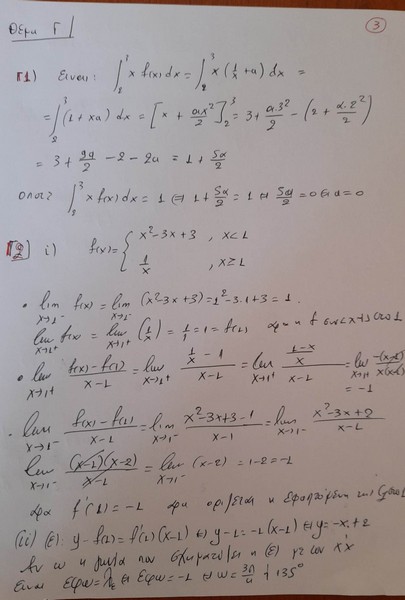 Θέμα Γ
3
Γ1) Είναι: ∫₂³ x f(x) dx = ∫₂³ x (1/x + α) dx =
= ∫₂³ (1 + xα) dx = [x + αx²/2]₂³ = 3 + α·3²/2 − (2 + α·2²/2)
= 3 + 9α/2 − 2 − 2α = 1 + 5α/2
όπου ∫₂³ x f(x) dx = 1 ⇔ 1 + 5α/2 = 1 ⇔ 5α/2 = 0 ⇔ α = 0
Γ2 i) f(x) = { x² − 3x + 3 , x < 1
1/x , x ≥ 1
• lim x→1⁻ f(x) = lim x→1⁻ (x² − 3x + 3) = 1² − 3·1 + 3 = 1.
lim x→1⁺ f(x) = lim x→1⁺ (1/x) = 1/1 = 1 = f(1) άρα η f συνεχής στο 1
• lim x→1⁺ (f(x) − f(1))/(x − 1) = lim x→1⁺ (1/x − 1)/(x − 1) = lim x→1⁺ ((1 − x)/x)/(x − 1) = lim x→1⁺ −(x − 1)/(x(x − 1))
= −1
• lim x→1⁻ (f(x) − f(1))/(x − 1) = lim x→1⁻ (x² − 3x + 3 − 1)/(x − 1) = lim x→1⁻ (x² − 3x + 2)/(x − 1)
lim x→1⁻ (x − 1)(x − 2)/(x − 1) = lim x→1⁻ (x − 2) = 1 − 2 = −1
άρα f'(1) = −1 άρα ορίζεται η εφαπτομένη της
(ii) (ε): y − f(1) = f'(1)(x − 1) ⇔ y − 1 = −1(x − 1) ⇔ y = −x + 2
Αν ω η γωνία που σχηματίζει η (ε) με τον x'x
Είναι εφω = λε ⇔ εφω = −1 ⇔ ω = 3π/4 135°